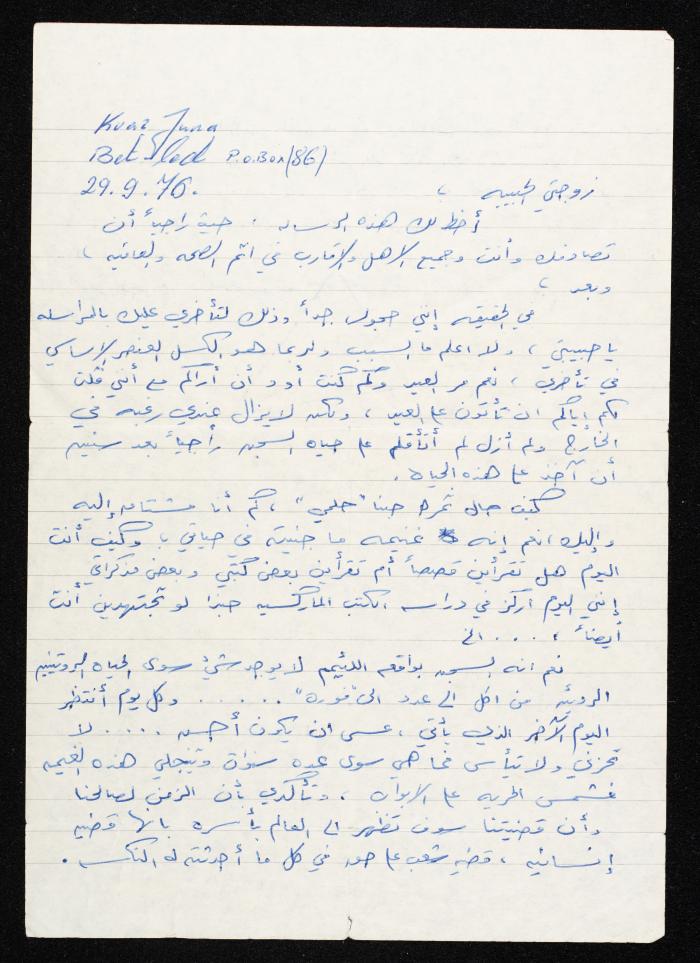 Kvar Juna
Bet Led P.O.Box (86)
29.9.76.
زوجتي الحبيبه ،
أخط لك هذه الرساله ، حية راجياً أن
تصادفك وأنت وجميع الاهل والاقارب في اتم الصحه والعافيه ،
وبعد ،
في الحقيقه إنني خجول جداً وذلك لتأخري عليك بالمراسله
يا حبيبتي ، ولا اعلم ما السبب ولربما هو الكسل العنصر الاساسي
في تأخري ، نعم مر العيد وكم كنت أود أن أراكم مع أنني قلت
لكم إياكم ان تأتون على العيد ، ولكن لا يزال عندي رغبه في
الخارج ولم أزل لم أتأقلم على حياه السجن راجياً بعد سنين
أن آخذ على هذه الحياه .
كيف حال ثمره حبنا "حلمي" ، كم أنا مشتاق إليه
وإليك ، نعم إنه غنيمه ما جنيته في حياتي ، وكيف أنت
اليوم هل تقرأين قصصاً أم تقرأين بعض كتبي وبعض مذكراتي
إنني اليوم اركز في دراسه الكتب الماركسيه حبذا لو تجتهدين أنت
أيضاً ، .... الخ
نعم انه السجن بواقعه اللئيم لا يوجد شيئ سوى الحياه الروتينيه
من اكل الى عدد الى "فوره" ...... وكل يوم أنتظر
اليوم الآخر الذي يأتي ، عسى ان يكون أحسن ..... لا
تحزني ولا تيأسي فما هي سوى عده سنوات وتنجلي هذه الغيمه
فشمس الحريه على الابواب ، وتأكدي بأن الزمن لصالحنا
وأن قضيتنا سوف تظهر الى العالم بأسره بانها قضيه
إنسانيه ، قضيه شعب في كل ما أحدثته له النكسه .